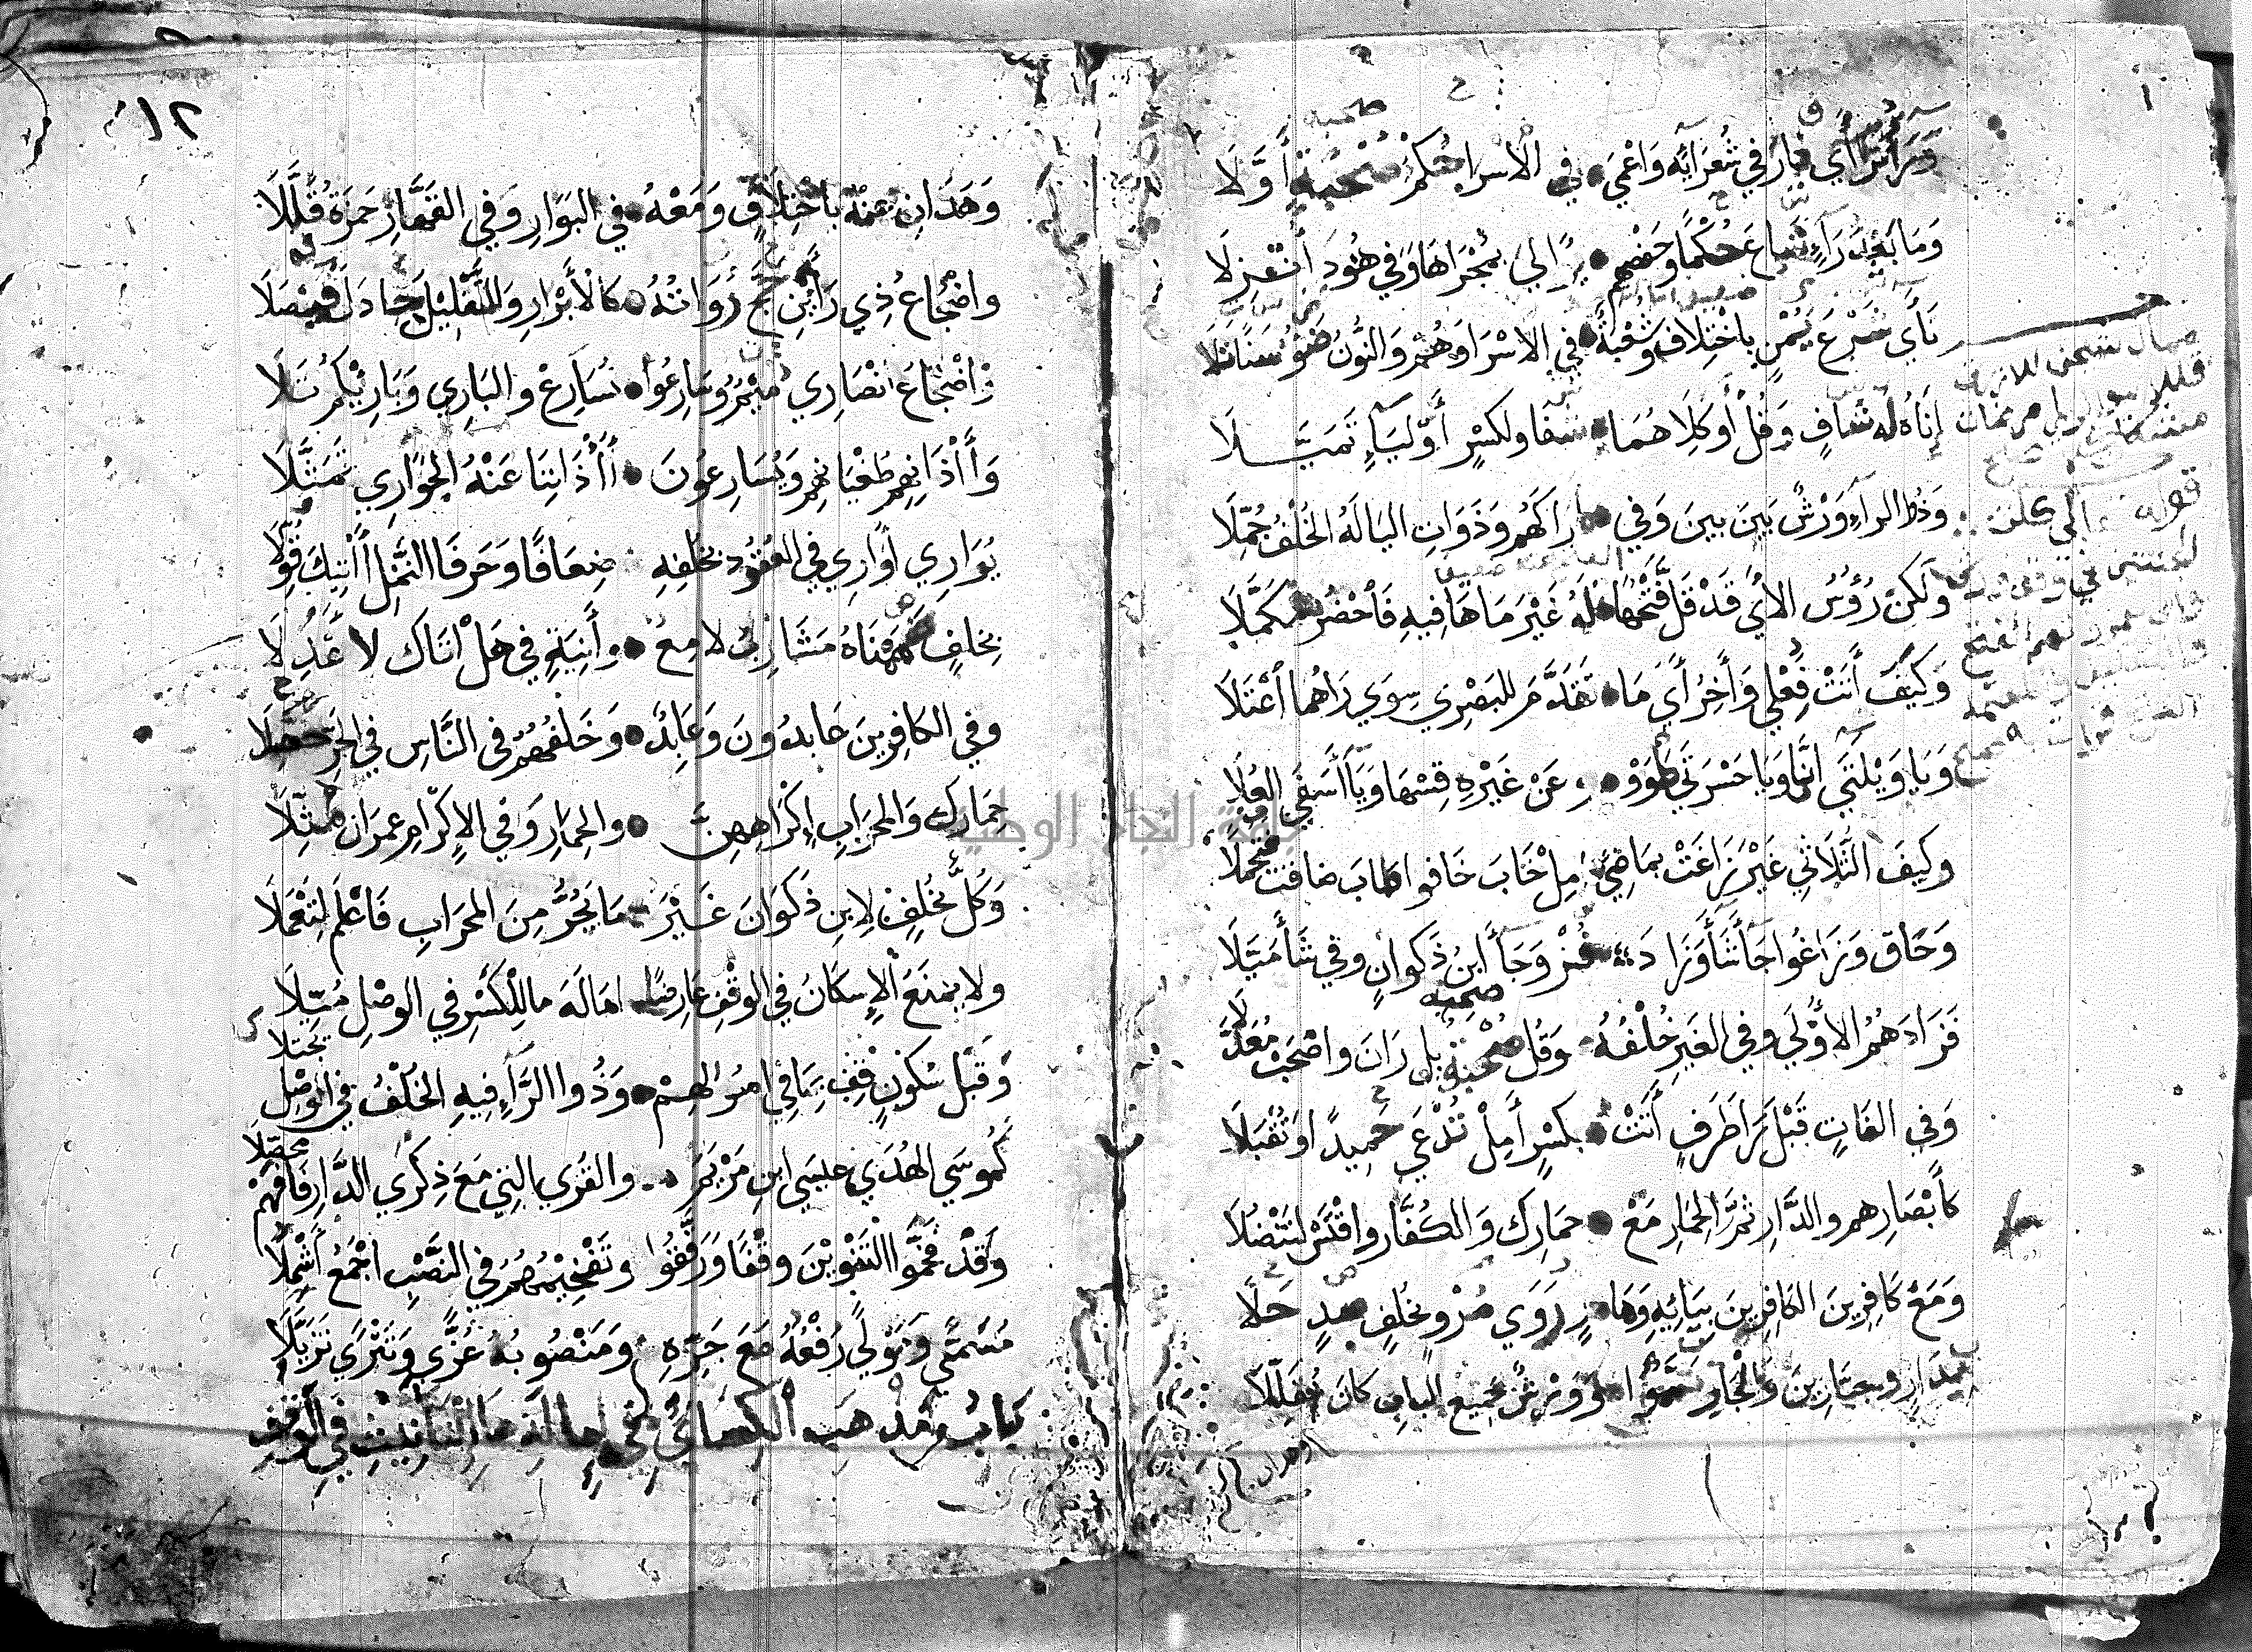 وَرَاءُ تَرَاءَي فَازَ فِي شُعَرَائِهِ وَاعْمَي • فِي الْاسْرَا حُكْمُ صُحْبَةٍ أَوَّلَا
وَمَا بَعْدَ رَاءٍ شَاعَ حُكْمًا وَحَفْصُهُم • يُوَالِي بِمَجْرَاهَا وَفِي هُودَ أُنْزِلَا
نَأَي شَرْعُ يُمْنٍ بِاخْتِلَافٍ وَشُعْبَةٌ • فِي الاسْرَا وَهُمْ وَالنُّونُ ضَوْءُ سَنًا تَلَا
إِنَاهُ لَهُ شَافٍ وَقُلْ أَوْ كِلَاهُمَا • شَفَا وَلِكَسْرٍ أَوْ لِيَاءٍ تَمَيَّلَا
وَذُو الرَاءِ وَرْشٌ بَيْنَ بَيْنَ وَفِي • أَرَاكَهُمْ وَذَوَاتِ اليَا لَهُ الخُلْفُ جُمِّلَا
وَلَكِنْ رُؤُسُ الآيِ قَدْ قَلَّ فَتْحُهَا • لَهُ غَيْرَ مَا هَا فِيهِ فَاحْضُرْ مُكَمَّلَا
وَكَيْفَ أَتَتْ فَعْلَي وَآخِرُ أَيِ مَا • تَقَدَّمَ لِلبَصْرِي سِوَي رَاهُمَا اعْتَلَا
وَيَا وَيْلَتَي أَنَّي وَيَا حَسْرَتَي طَوَوْا • وَعَنْ غَيْرِهِ قِسْهَا وَيَا أَسَفَي العُلَا
وَكَيْفَ الثُّلَاثِي غَيْرَ زَاغَتْ بِمَاضِيٍ • أَمِلْ خَابَ خَافُوا طَابَ ضَاقَتْ فَتُجْمِلَا
وَحَاقَ وَزَاغُوا جَاءَ شَاءَ وَزَادَ • فُزْ وَجَاءَ ابْنُ ذَكْوَانٍ وَفِي شَاءَ مَيَّلَا
فَزَادَهُمُ الأُوْلَي وَفِي الغَيْرِ خُلْفُهُ • وَقُلْ صُحْبَةٌ بَلْ رَانَ وَاصْحَبْ مُعَدَّلَا
وَفِي أَلِفَاتٍ قَبْلَ رَا طَرَفٍ أَتَتْ • بِكَسْرٍ أَمِلْ تُدْعَي حَمِيدًا وَتُقْبَلَا
كَأَبْصَارِهِمْ وَالدَّارِ ثُمَّ الحِمَارِ مَعْ • حِمَارِكَ وَالكُفَّارِ وَاقْتَسْ لِتَنْضُلَا
وَمَعْ كَافِرِينَ الكَافِرِينَ بِيَائِهِ وَهَارٍ • رَوَي مُرْوٍ بِخُلْفٍ صَدٍ حَلَا
بَدَارِ وَجَبَّارِينَ وَالْجَارِ تَمَّمُوا • وَوَرْشٌ جَمِيعَ البَابِ كَانَ مُقَلِّلَا
١٢
وَهَذَانِ عَنْهُ بِاخْتِلَافٍ وَمَعْهُ • فِي البَوَارِ وَفِي القَهَّارِ حَمْزَةُ قَلَّلَا
وَاضْجَاعُ ذِي رَايَيْنِ حَجَّ رُوَاتُهُ • كَالأَبْرَارِ وَالتَّقْلِيْلُ جَادَلَ فَيْصَلَا
وَاضْجَاعُ أَنْصَارِي تَمِيْمٌ وَسَارِعُوا • نُسَارِعْ وَالبَارِي وَبَارِئِكُمْ تَلَا
وَأَاْذَانِهِمْ طُغْيَانِهِمْ وَيُسَارِعُونَ • أَاْذَانِنَا عَنْهُ الجَوَارِي تَمَثَّلَا
يُوَارِي أُوَارِي فِي العُقُودِ بِخُلْفِهِ • ضِعَافًا وَحَرْفَا النَّمْلِ أَاْتِيكَ قَوَّلَا
بِخُلْفٍ ضَمَمْنَاهُ مَشَارِبُ لَامِعٌ • وَأَنِيَةٍ فِي هَلْ أَتَاكَ لَا عَدَّلَا
وَفِي الكَافِرِينَ عَابِدُونَ وَعَابِدٌ • وَخَلْفُهُمُ فِي النَّاسِ فِي الجَرِّ حُصِّلَا
حِمَارِكَ وَالمِحْرَابِ إِكْرَاهِهِنَّ • وَالحِمَارِ وَفِي الإِكْرَامِ عِمْرَانَ مُثِّلَا
وَكُلٌّ بِخُلْفٍ لِابْنِ ذَكْوَانَ غَيْرَ • مَا يُجَرُّ مِنَ المِحْرَابِ فَاعْلَمْ لِتَعْمَلَا
وَلَا يَمْنَعُ الْإِسْكَانُ فِي الوَقْفِ عَارِضًا • امَالَةَ مَا لِلْكَسْرِ فِي الوَصْلِ مُيِّلَا
وَقَبْلَ سُكُونٍ قِفْ بِمَا فِي أُصُولِهِمْ • وَذُو الرَّاءِ فِيهِ الخُلْفُ فِي الوَصْلِ يُجْتَلَا
كَمُوسَي الهُدَي عِيسَي ابْنِ مَرْيَمَ • وَالقُرَي الَّتِي مَعَ ذِكْرَي الدَّارِ فَافْهَمْ مُحَصِّلَا
وَقَدْ فَخَّمُوا التَنْوِيْنَ وَقْفًا وَرَقَّقُوا • وَتَفْخِيْمُهُمْ فِي النَّصْبِ اجْمَعُ أَشْمُلَا
مُسَمًّي وَمَوْلًي رَفْعُهُ مَعَ جَرِّهِ • وَمَنْصُوبُهُ غُزًّي وَتَتْرَي تَزَيَّلَا
بَابُ مَذْهَبِ الْكِسَائِيِّ فِي إِمَالَةِ هَاءِ التَّأْنِيْثِ فِي الْوَقْفِ